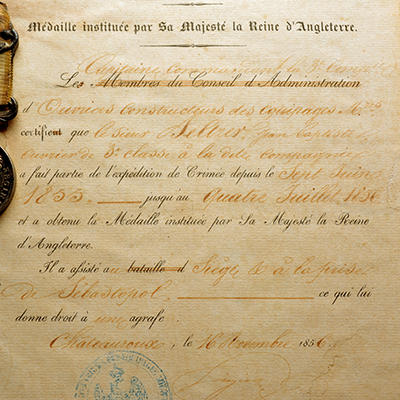 Médaille instituée par Sa Majesté la Reine d'Angleterre.
Capitaine commandant la 3e Compagnie
Les Membres du Conseil d'Administration
d'Ouvriers constructeurs des équipages Mres
certifient que le sieur Jean Baptiste
ouvrier de 3e classe à la dite compagnie
a fait partie de l'expédition de Crimée depuis le Sept Juin
1855 jusqu'au Quatre Juillet 1856
et a obtenu la Médaille instituée par Sa Majesté la Reine
d'Angleterre.
Il a assisté au bataille d Siège & à la prise
de Sébastopol, ce qui lui
donne droit à une agrafe.
Chateauroux, le 16 Novembre 1856